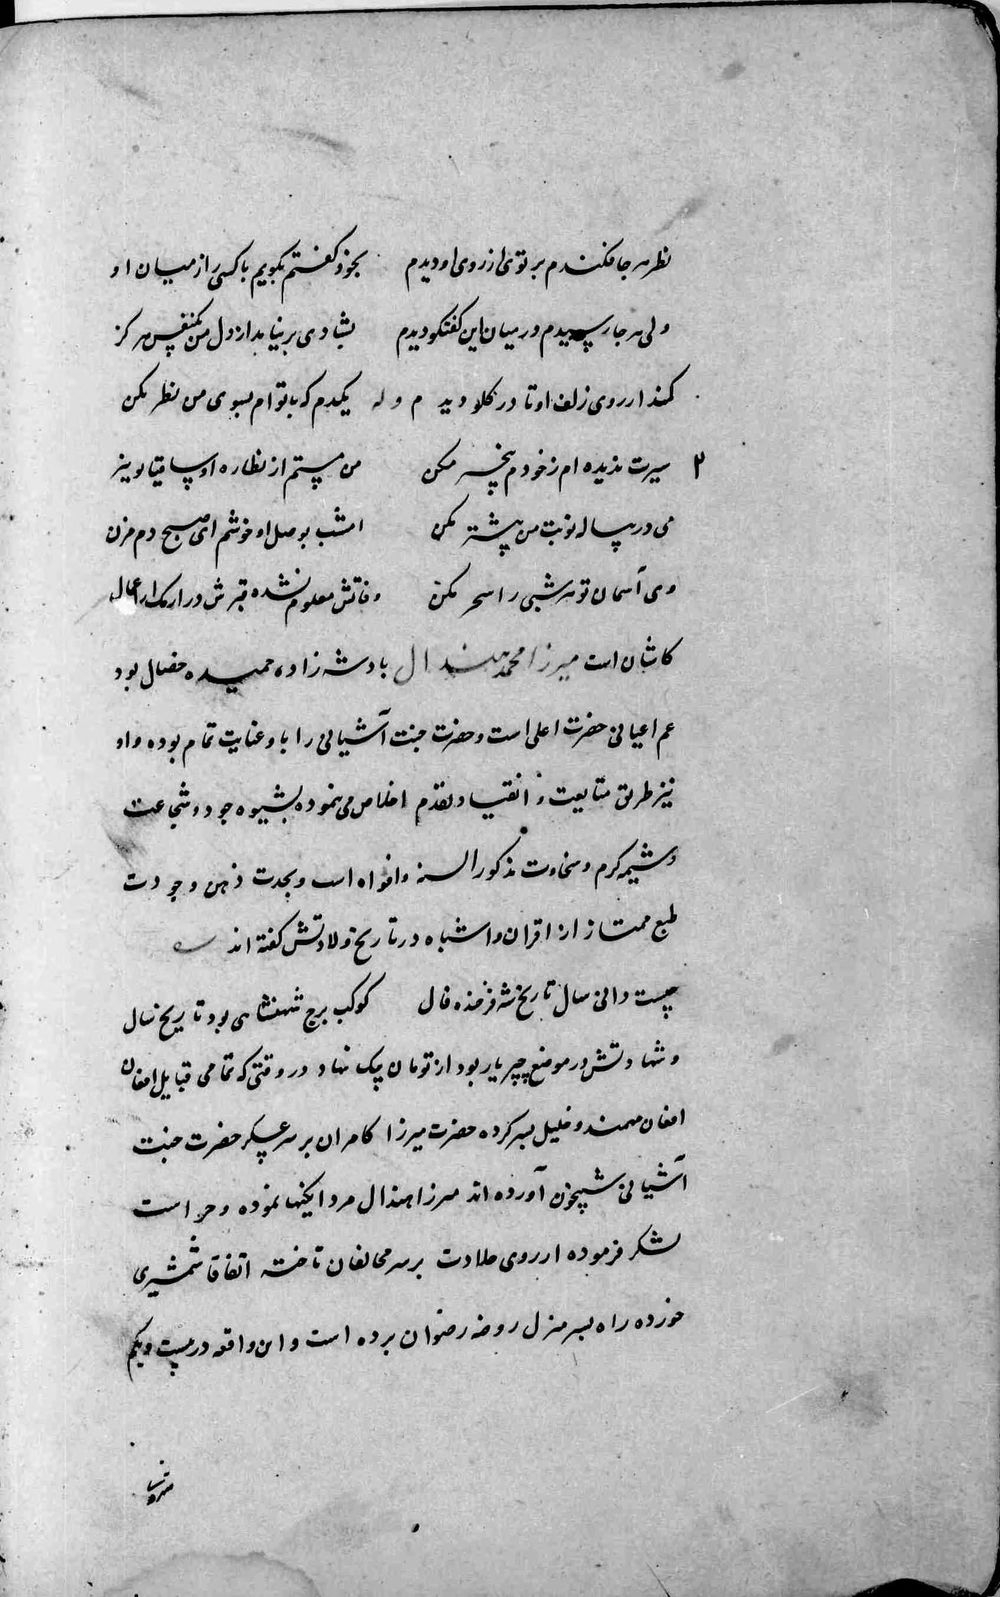 نظر هر جا فکندم پرتوی از روی او دیدم بخود گفتم بگویم با کسی راز میان او
ولی هر جا رسیدم در میان این گفتگو دیدم بشادی بر نیامد از دل من یکنفس هرگز
کمند از روی زلف او تا در گلو دیدم وله یکدم که با توام بسوی من نظر مکن
سیرت ندیده ام ز خودم بیخبر مکن من مستم از نظاره او ساقیا تو نیز
می در پیاله نوبت من بیشتر مکن امشب بوصل او خوشم ای صبح دم مزن
وی آسمان تو هر شبی را سحر مکن وفاتش معلوم نشده قبرش در اراک اعمال
کاشان است میرزا محمد هندال پادشه زاده حمیده خصال بود
عم اعیانی حضرت اعلی است و حضرت جنت آشیانی را باو عنایت تمام بوده و او
نیز طریق متابعت و انقیاد بقدم اخلاص می نموده بشیوه جود و شجاعت
و شیمه کرم و سخاوت مذکور السنه و افواه است و بحدت ذهن و جودت
طبع ممتاز از اقران و اشباه در تاریخ ولادتش گفته اند
چیست دانی سال تاریخ شه فرخنده فال کوکب برج شهنشاهی بود تاریخ سال
و شهادتش در موضع چپریار بود از تومان نیک نهاد در وقتی که تمامی قبایل افغان
افغان مهمند و خلیل بسر کرده حضرت میرزا کامران بر سر عسکر حضرت جنت
آشیانی شبیخون آورده اند میرزا هندال مردانکیها نموده و حراست
لشکر فرموده از روی جلادت بر سر مخالفان تاخته اتفاقا شمشیری
خورده راه بسر منزل روضه رضوان برده است و این واقعه در بیست و یکم